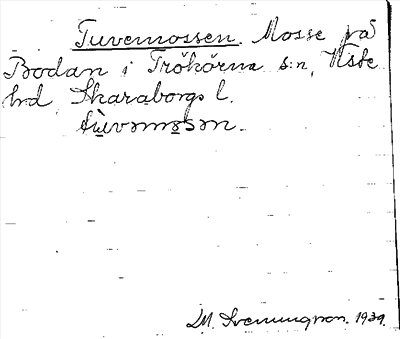 Tuvemossen. Mosse på
Bodan i Trökörna s:n, Åse
hd Skaraborgs l.
tùvəmɷsən.
M. Svenungson. 1939.